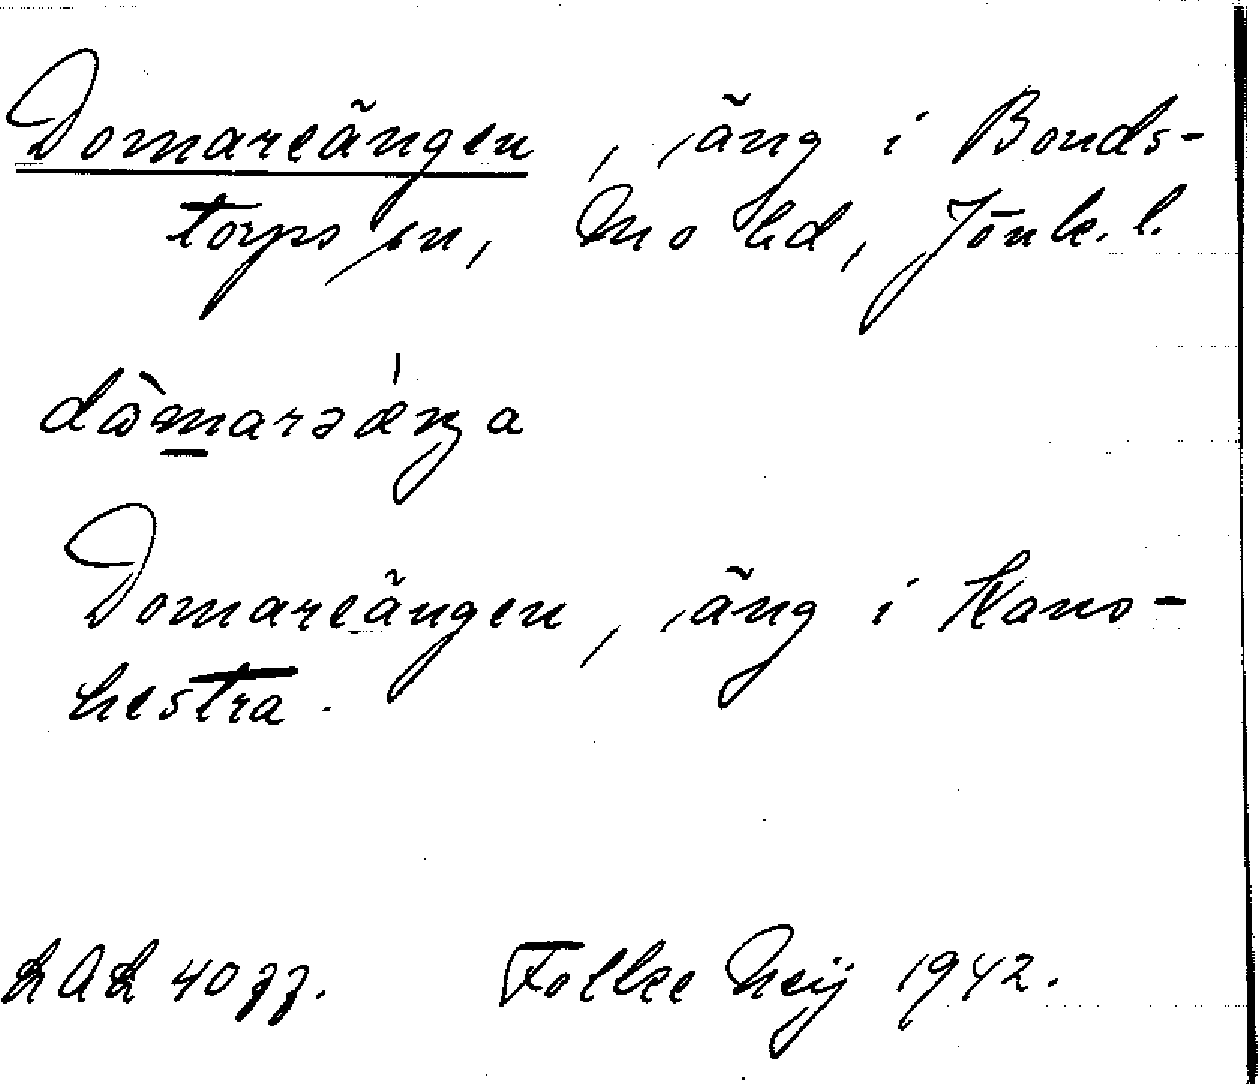 Domareängen, äng i Bonds-
torps sn, Mo hd, Jönk. l.
Domareängen, äng i
hestra.
40 Folke Heij 1942.